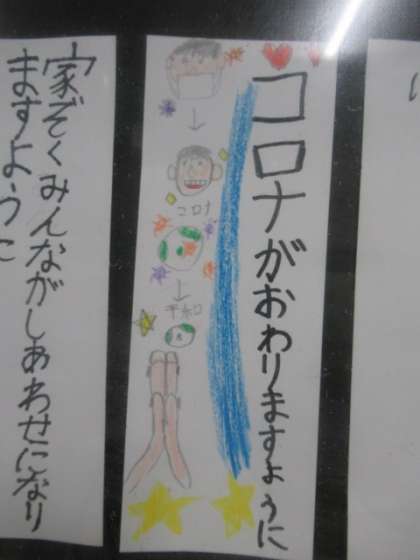 コロナがおわりますように
コロナ
平和
家ぞくみんながしあわせになり
ますように